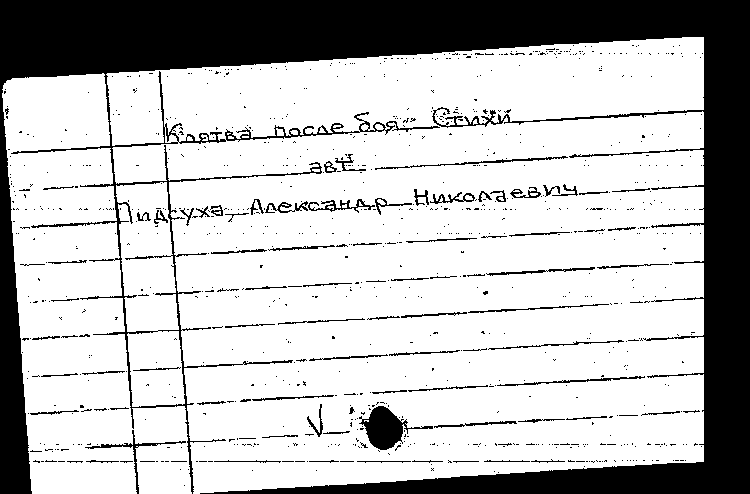 Клятва после боя: Стихи.
авт.
Пидсуха, Александр Николаевич
V